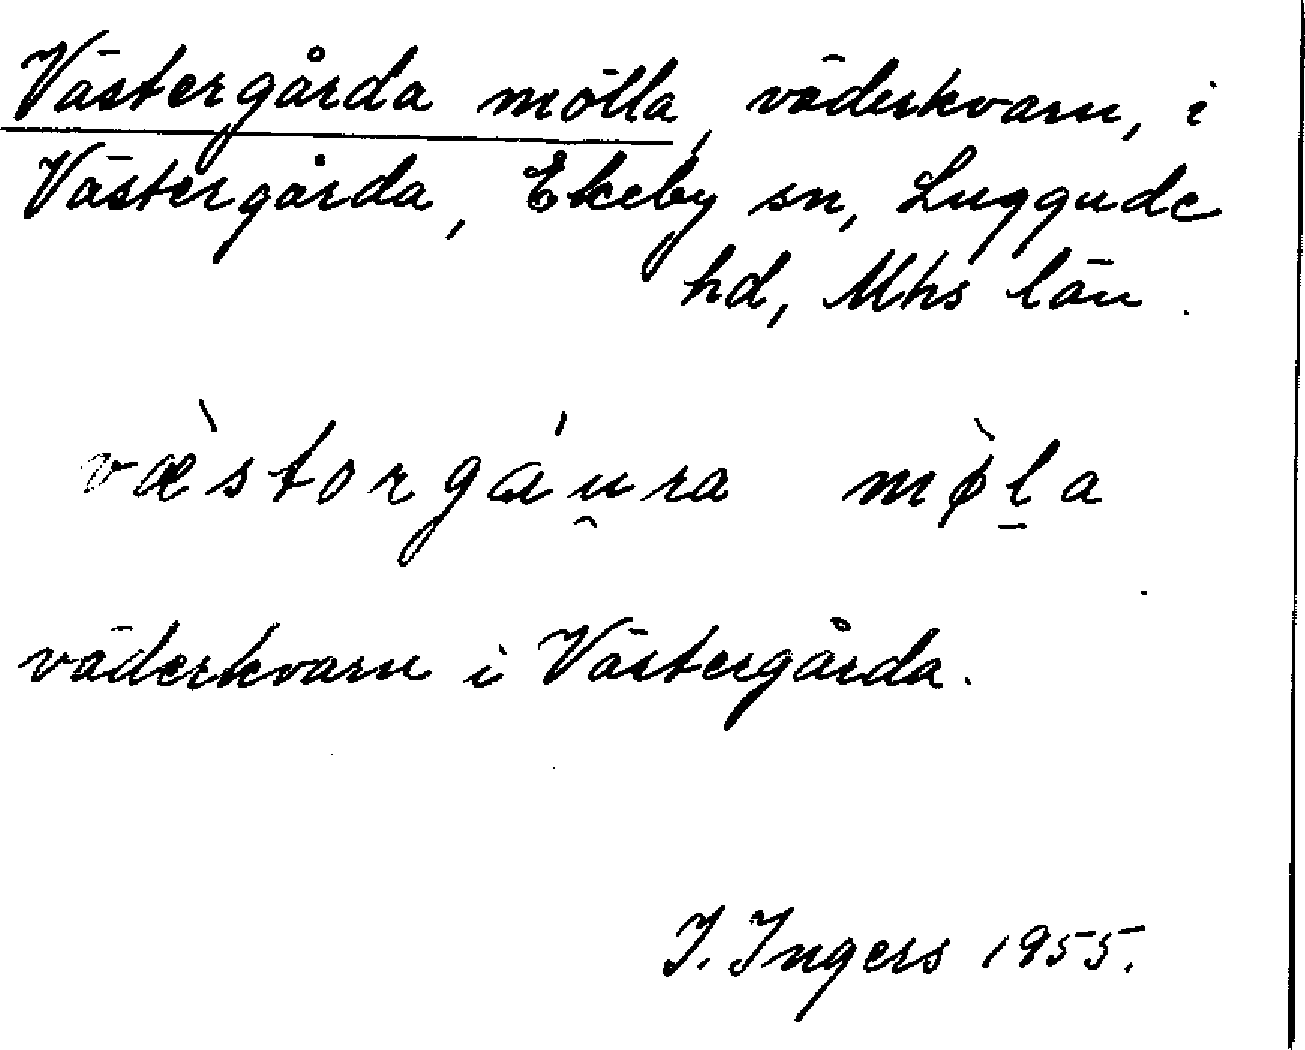 Västergårda mölla, väderkvarn, i
Västergårda, Ekeby sn, Luggude
hd, Mhs län.
væ̀storgáu̯ra mø̀l̠a
väderkvarn i Västergårda.
I. Ingers 1955.